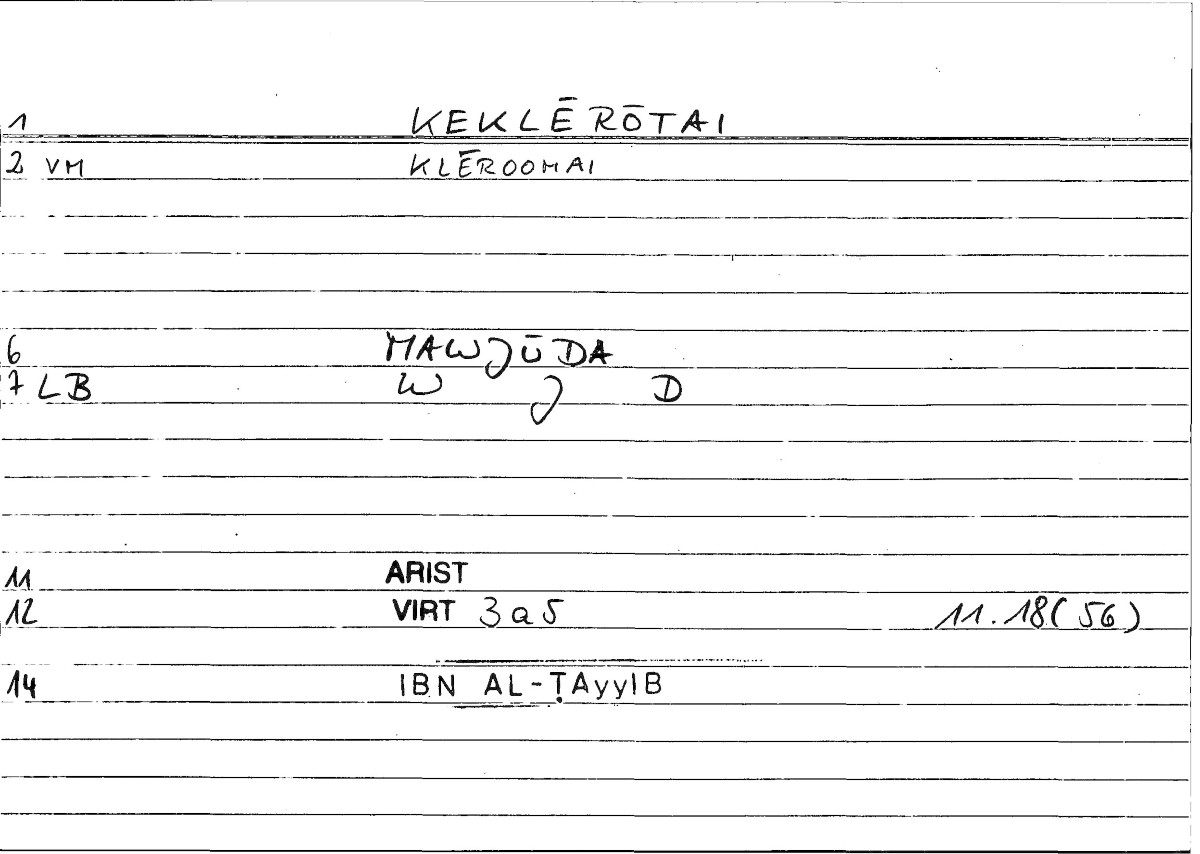 1 KEKLĒRŌTAI
2 VM KLĒROOMAI
6 MAWJŪDA
7 LB W J D
11 ARIST
12 VIRT 3a5 11.18(56)
14 IBN AL-ṬAyyIB